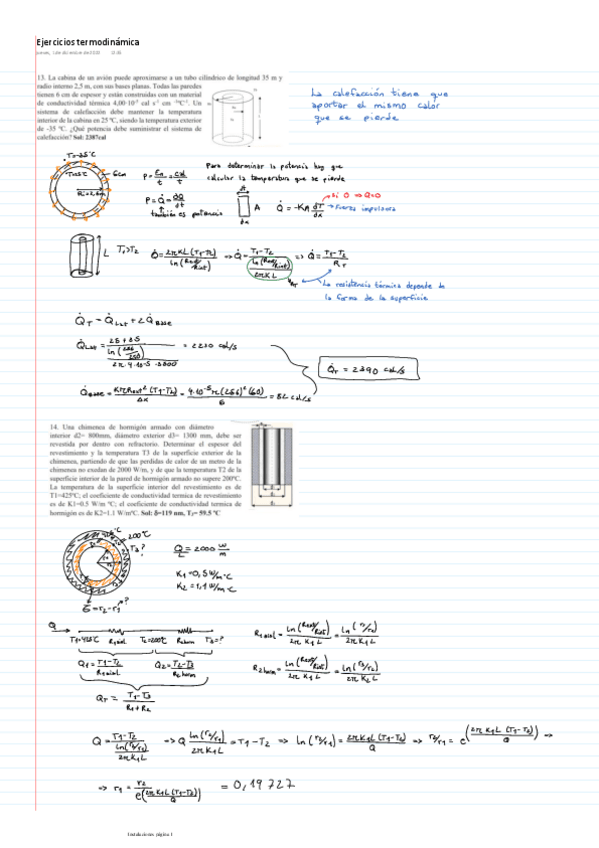 Ejercicios termodinámica
13. La cabina de un avión puede aproximarse a un tubo cilíndrico de longitud 35 m y
radio interno 2,5 m, con sus bases planas. Todas las paredes
tienen 6 cm de espesor y están construidas con un material
de conductividad térmica 4,00·10⁻⁵ cal s⁻¹ cm⁻¹ºC⁻¹. Un
sistema de calefacción debe mantener la temperatura
interior de la cabina en 25 ºC, siendo la temperatura exterior
de -35 ºC. ¿Qué potencia debe suministrar el sistema de
calefacción? Sol: 2387cal
La calefacción tiene que
aportar el mismo calor
que se pierde
6cm
Para determinar la potencia hay que
calcular la temperatura que se pierde
P = En/t = cal/t
P = Q̇ = dQ/dt
también es potencia
A
dx
Q̇ = -KA dT/dx
Si 0 → Q=0
Fuerza impulsora
L
T₁>T₂
Q̇ = 2πKL(T1-T2)/ln(Rext/Rint) => Q̇ = T1-T2/(ln(Rext/Rint)/2πKL) => Q̇ = T1-T2/RT
La resistencia térmica depende de
la forma de la superficie
Q̇T = Q̇Lat + 2Q̇Base
Q̇Lat = 25+35/(ln(256/250)/2π·4·10-5·3500) = 2230 cal/s
Q̇T = 2390 cal/s
Q̇Base = KπRext²(T1-T2)/Δx = 4·10-5π(256)²(60)/6 = 82 cal/s
14. Una chimenea de hormigón armado con diámetro
interior d2= 800mm, diámetro exterior d3= 1300 mm, debe ser
revestida por dentro con refractorio. Determinar el espesor del
revestimiento y la temperatura T3 de la superficie exterior de la
chimenea, partiendo de que las perdidas de calor de un metro de la
chimenea no exedan de 2000 W/m, y de que la temperatura T2 de la
superficie interior de la pared de hormigón armado no supere 200ºC.
La temperatura de la superficie interior del revestimiento es de
T1=425ºC; el coeficiente de conductividad termica de revestimiento
es de K1=0.5 W/m ºC; el coeficiente de conductividad termica de
hormigón es de K2=1.1 W/mºC. Sol: δ=119 nm, T₃= 59.5 ºC
200ºC
T3?
δ=r2-r1?
Q/L = 2000 W/m
K1=0,5 W/m·ºC
K2=1,1 W/m·ºC
Q
T1=425ºC R1aisl T2=200ºC R2horm T3=?
R1aisl = ln(Rext/Rint)/2πK1L = ln(r2/r1)/2πK1L
Q1 = T1-T2/R1aisl
Q2 = T2-T3/R2horm
R2horm = ln(Rext/Rint)/2πK2L = ln(r3/r2)/2πK2L
QT = T1-T3/R1+R2
Q = T1-T2/(ln(r2/r1)/2πK1L) => Q ln(r2/r1)/2πK1L = T1-T2 => ln(r2/r1) = 2πK1L(T1-T2)/Q => r2/r1 = e^(2πK1L(T1-T2)/Q) =>
=> r1 = r2/e^(2πK1L(T1-T2)/Q) = 0,19727
Instalaciones página 1